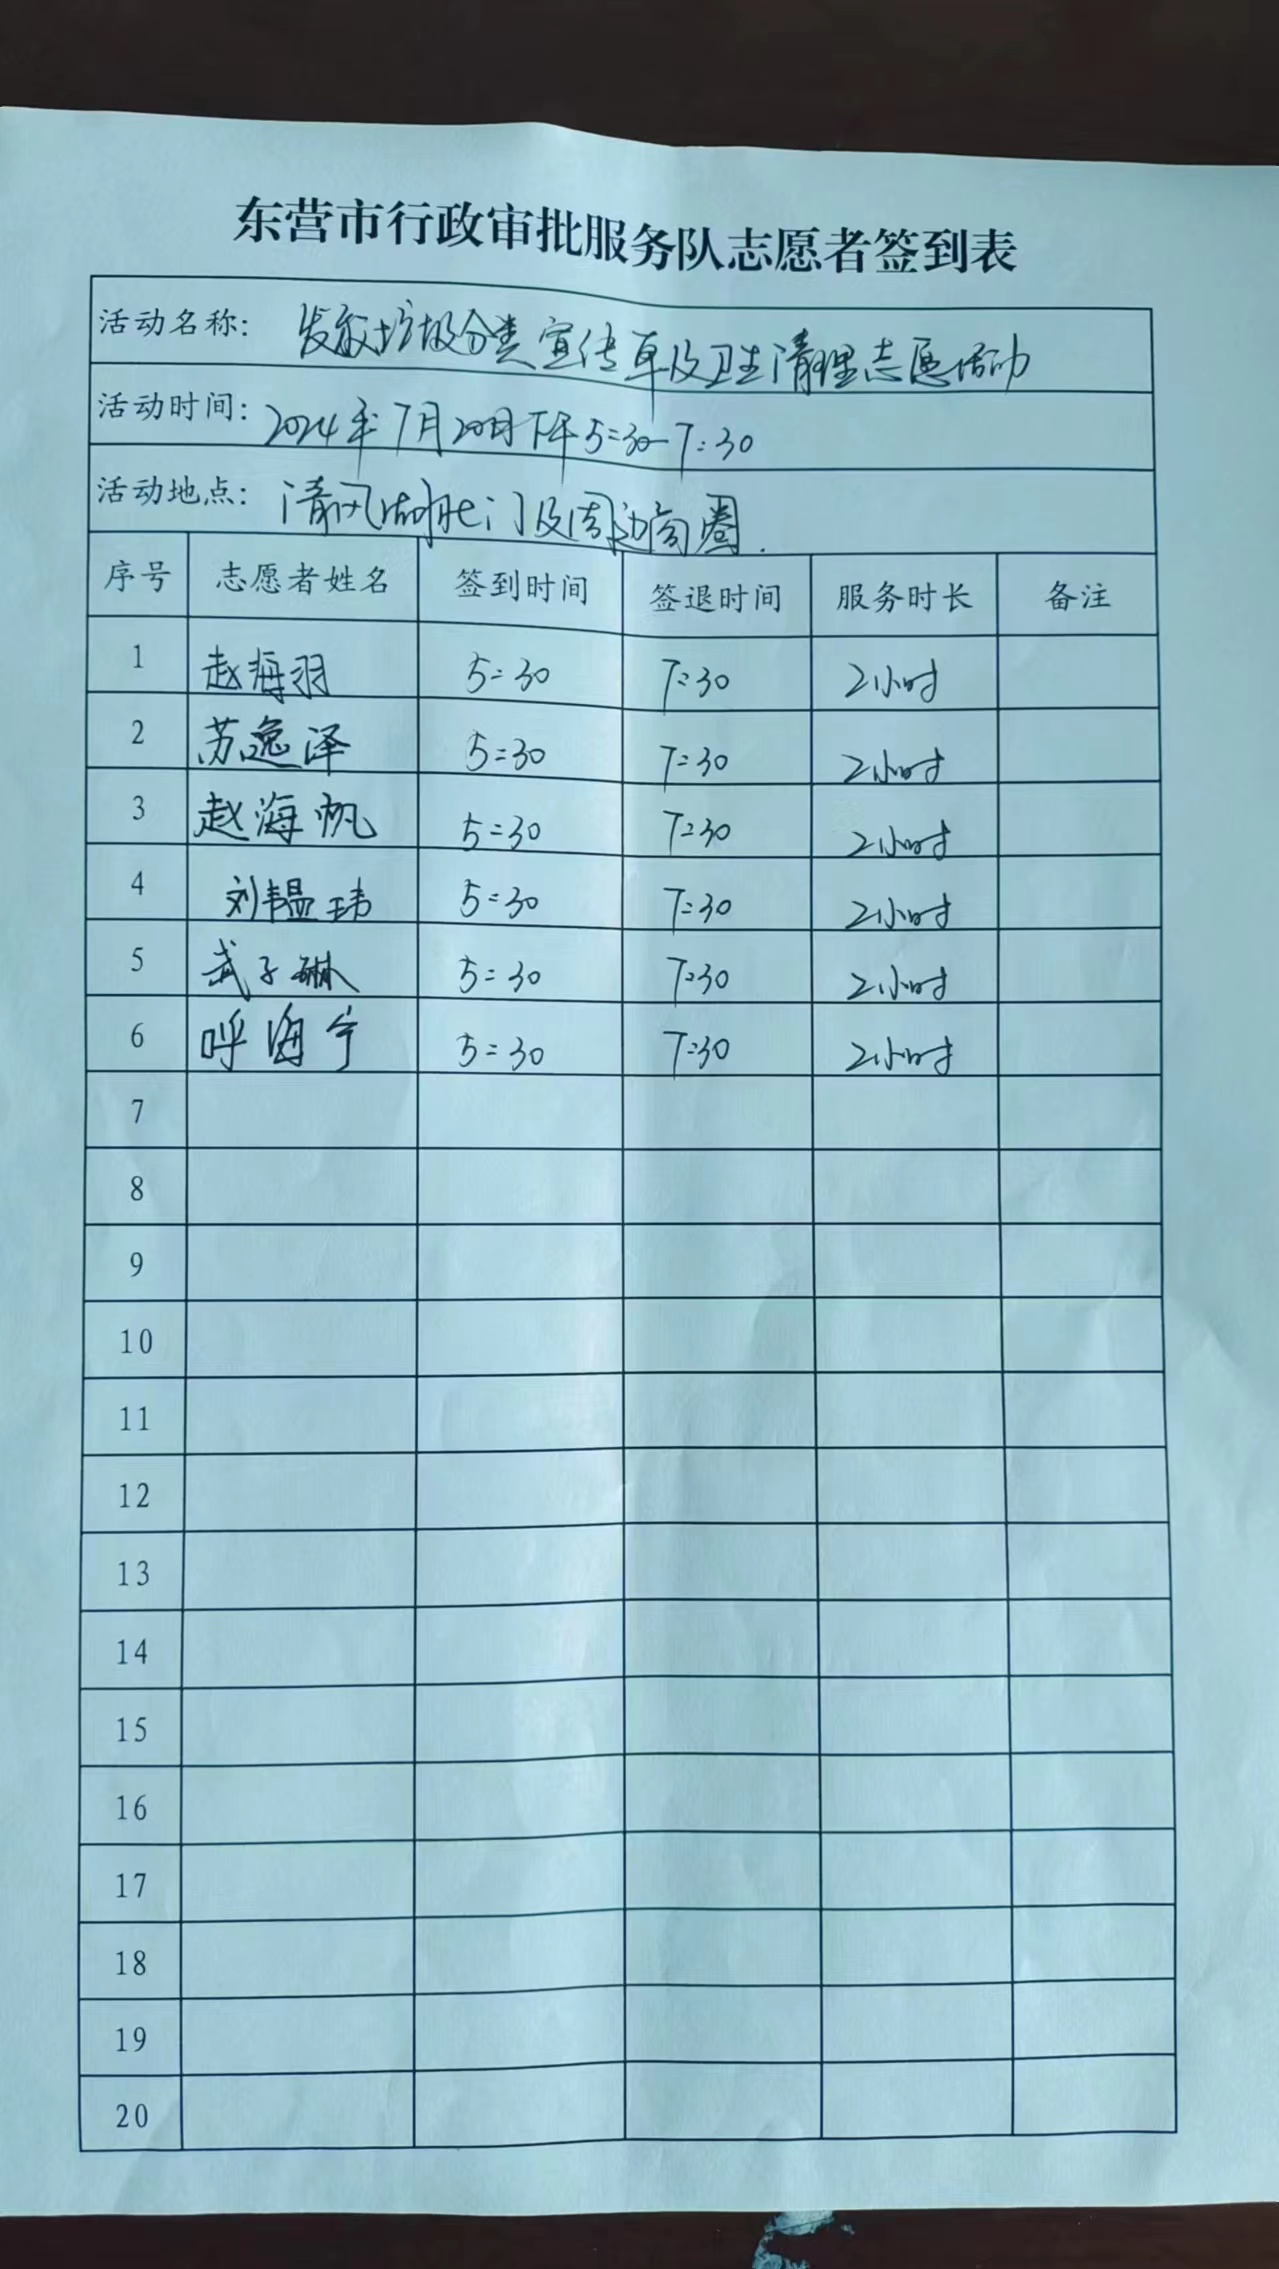 东营市行政审批服务队志愿者签到表
活动名称: 发放垃圾分类宣传单及卫生清理志愿活动
活动时间: 2024年7月20日下午5:30-7:30
活动地点: 清风湖北门及周边商圈.
序号 志愿者姓名 签到时间 签退时间 服务时长 备注
1 赵海羽 5:30 7:30 2小时
2 苏逸泽 5:30 7:30 2小时
3 赵海帆 5:30 7:30 2小时
4 刘韫玮 5:30 7:30 2小时
5 武子琳 5:30 7:30 2小时
6 呼海宁 5:30 7:30 2小时
7
8
9
10
11
12
13
14
15
16
17
18
19
20